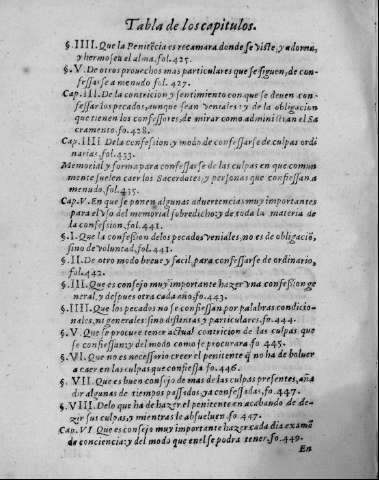 Tabla de los capitulos.
§. IIII. Que la Penitẽcia es recamara donde se viste, y adorna,
y hermosea el alma. fol. 425.
§. V. De otros prouechos mas particulares que se siguen, de con-
fessarse a menudo fol. 427.
Cap. III. De la contricion y sentimiento con que se deuen con-
fessar los pecados, aunque sean veniales: y de la obligacion
que tienen los confessores, de mirar como administran el Sa
cramento. fo. 428.
Cap. IIII De la confession y modo de confessarse de culpas ordi
narias. fol. 433.
Memorial y forma para confessarse de las culpas en que comun
mente suelen caer los Sacerdotes, y personas que confiessan a
menudo, fol. 435.
Cap. V. En que se ponen algunas aduertencias muy importantes
para el vso del memorial sobredicho: y de toda la materia de
la confession, fol. 441.
§. I. Que la confession delos pecados veniales, no es de obligaciõ,
sino de voluntad, fol. 441.
§. II. De otro modo breue y facil, para confessarse de ordinario,
fol. 442.
§. III. Que es consejo muy importante hazer vna confession ge
neral, y despues otra cada año. fo. 443.
§. IIII. Que los pecados no se confiessan por palabras condicio-
nales, ni generales: sino distintas y particulares. fo. 444.
§. V. Que se procure tener actual contricion de las culpas que
se confiessan: y del modo como se procurara. fo 445.
§. VI. Que no es necessario creer el penitente q̃ no ha de boluer
a caer en las culpas que confiessa fo. 446.
§. VII. Que es buen consejo de mas de las culpas presentes, aña
dir algunas de tiempos passados, ya confessadas, fo. 447.
§. VIII. Delo que ha de hazer el penitente en acabando de de-
zir sus culpas, y mientras le absueluen. fo. 447.
Cap. VI Que es consejo muy importante hazer cada dia examẽ
da conciencia: y del modo que en el se podra tener. fo. 449.
En